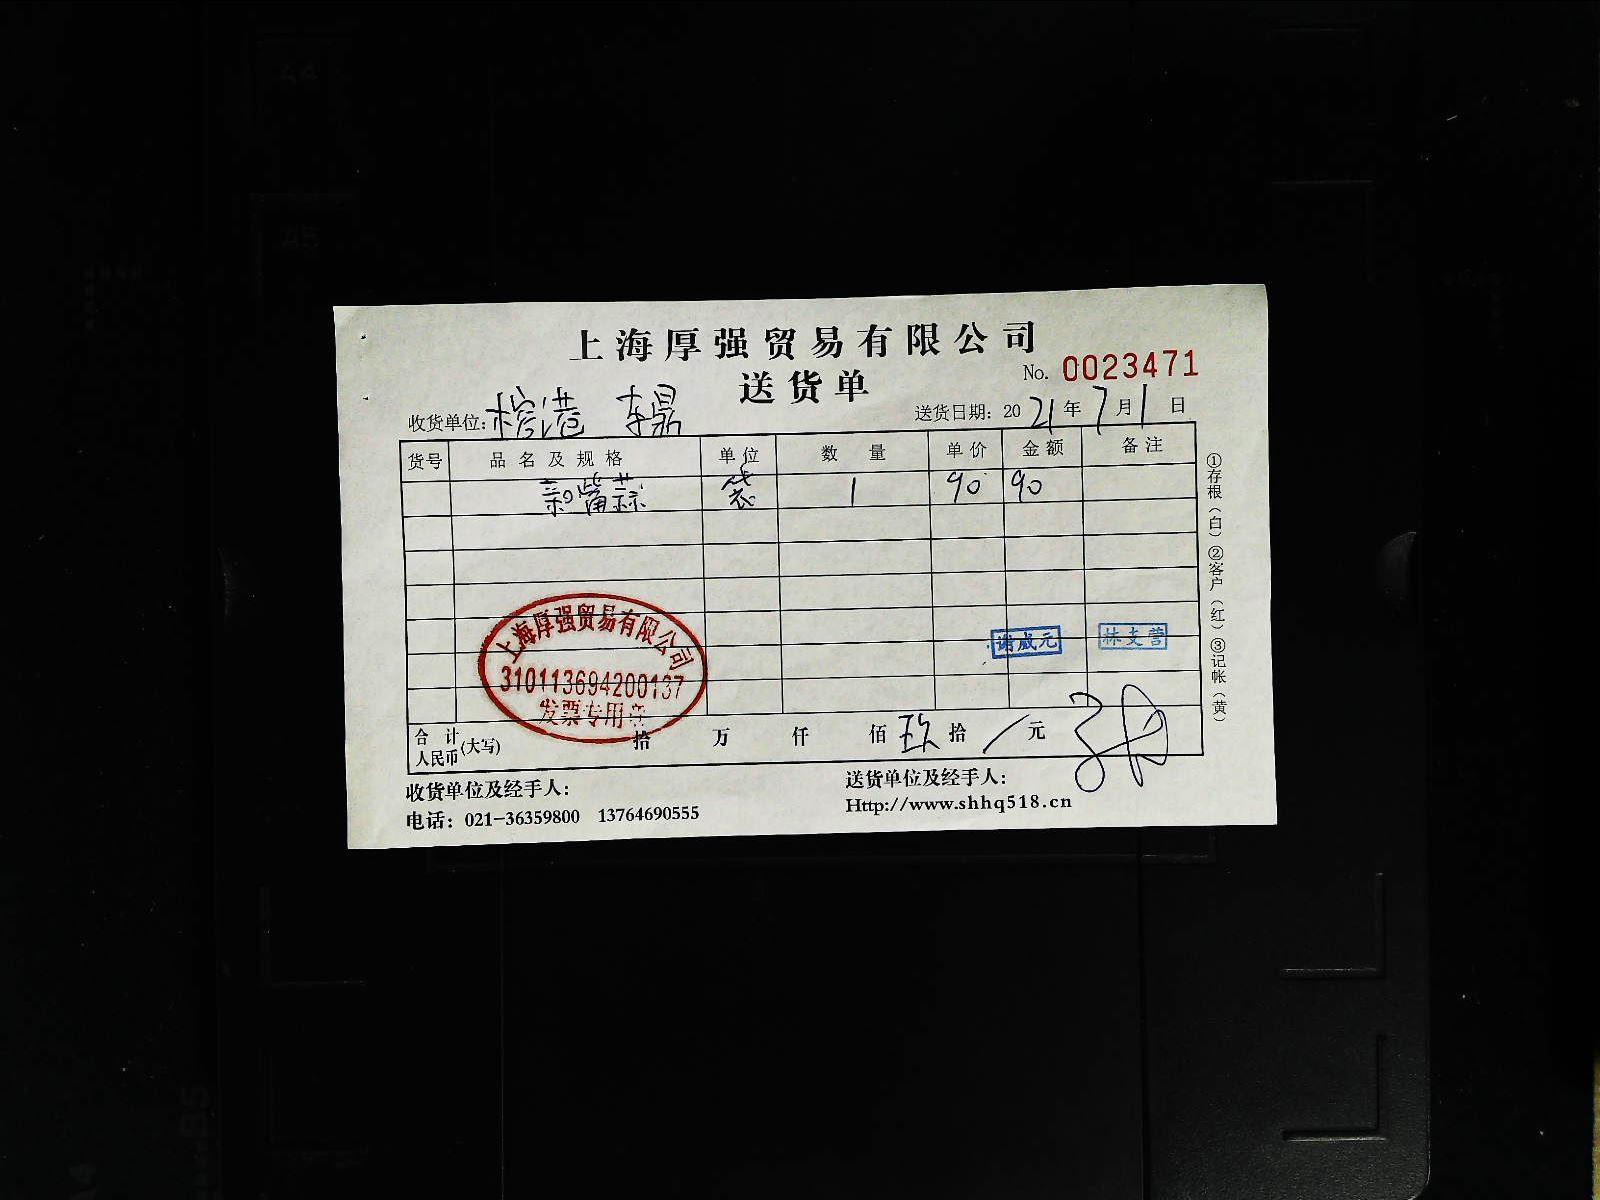 上海厚强贸易有限公司
No. 0023471
送货单
收货单位: 送货日期: 2021年7月1日
货号 品名及规格 单位 数量 单价 金额 备注
新 蒜 袋 1 90 90
①存根（白）②客户（红）③记帐（黄）
上海厚强贸易有限公司
310113694200137
发票专用章
谢威元 林支营
合计人民币(大写) 拾 万 仟 佰 玖 拾 / 元
收货单位及经手人: 送货单位及经手人:
电话: 021-36359800 13764690555 Http://www.shhq518.cn
A4
A5
B5